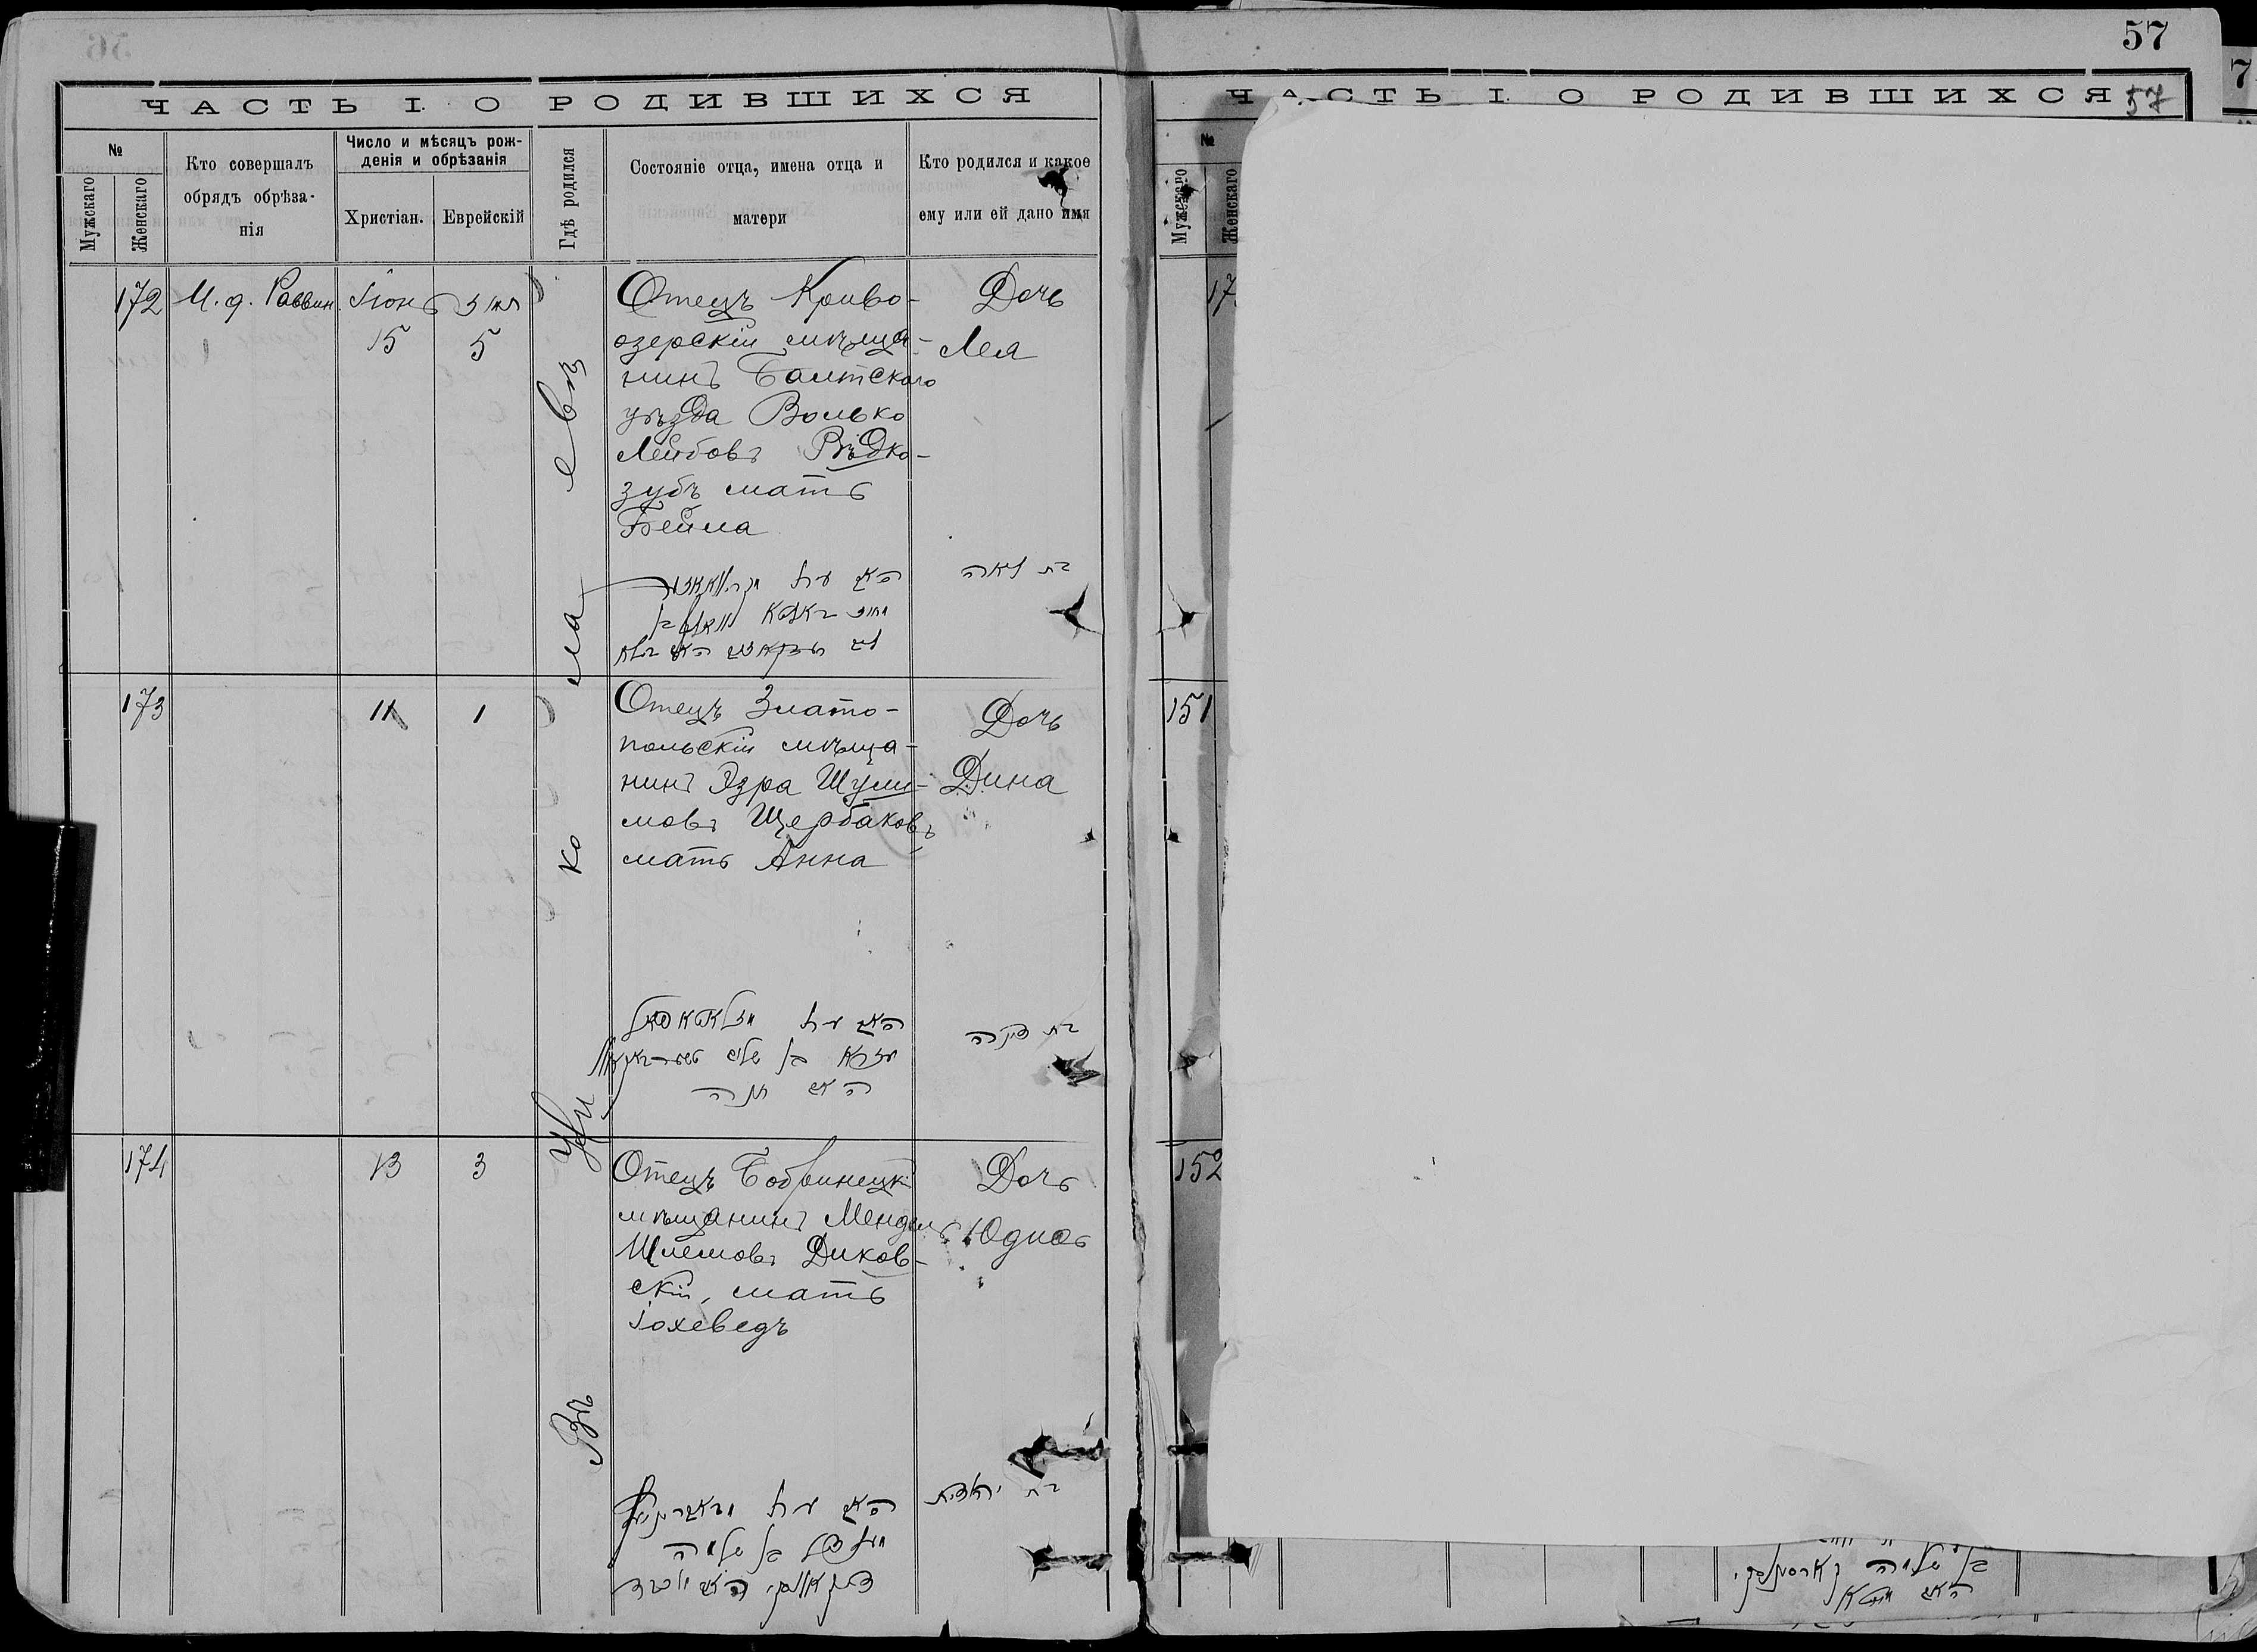 57
57
7
ЧАСТЬ I. О РОДИВШИХСЯ
№
Мужскаго
Женскаго
Кто совершалъ
обрядъ обрѣза-
нія
Число и мѣсяцъ рож-
денія и обрѣзанія
Христіан.
Еврейскій
Гдѣ родился
Состояніе отца, имена отца и
матери
Кто родился и какое
ему или ей дано имя
172
И. д. Раввин.
Іюнь
15
5
Отецъ Криво-
озерскій мѣща-
нинъ Балтскаго
уѣзда Волько
Лейбовъ Рѣдко-
зубъ мать
Бейла
Дочь
Лея
בת לאה
173
11
1
Отецъ Злато-
польскій мѣща-
нинъ Эзра Шули-
мовъ Щербаковъ
мать Анна
Дочь
Дина
בת דינה
האם חנה
174
13
3
Отецъ Бобринецкі
мѣщанинъ Мендель
Шлемовъ Диков-
скій, мать
Іохеведъ
Дочь
Юдись
בת יהודית
מענדל בן שלמה
ЧАСТЬ I. О РОДИВШИХСЯ
№
Мужскаго
Женскаго
17
151
152
בן שלמה